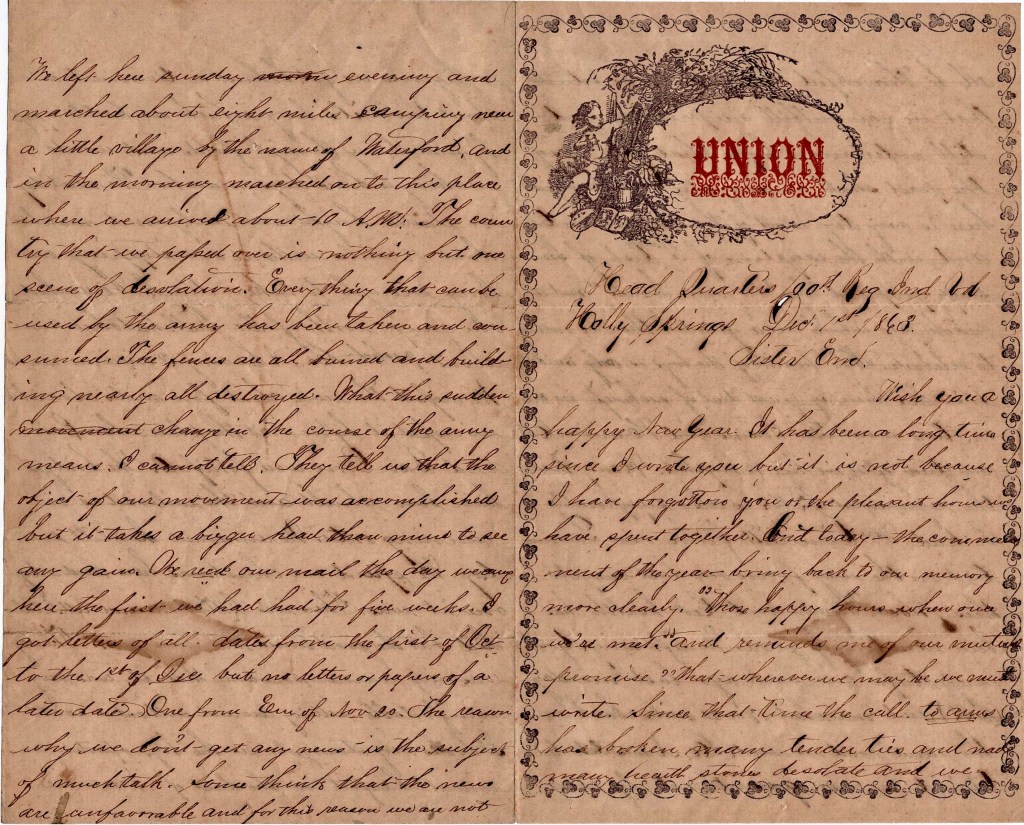 We left here sunday morn evening and
marched about eight miles camping near
a little village by the name of Waterford, and
in the morning marched on to this place
where we arrived about 10 A.M. The coun
try that we passed over is nothing but one
scene of desolation. Every thing that can be
used by the army has been taken and con-
sumed. The fences are all burned and build
ing nearly all destroyed. What this sudden
movement change in the course of the army
means, I cannot tell. They tell us that the
object of our movement was accomplished
but it takes a bigger head than mine to see
any gain. We recd our mail the day we came
here the first we had had for five weeks. I
got letters of all dates from the first of Oct
to the 1st of Dec but no letters or papers of a
later date. One from Em of Nov 20. The reason
why we don't get any news is the subject
of much talk. Some think that the news
are unfavorable and for this reason we are not
UNION
Head Quarters 100th Reg Ind Vol
Holly Springs Dec. 1st 1863.
Sister Em.
Wish you a
happy New Year. It has been a long time
since I wrote you but it is not because
I have forgotton you or the pleasant hours we
have spent together. But today - the commence
ment of the year bring back to our memory
more clearly. "Those happy hours when once
we've met" and reminds me of our mutual
promise "That wherever we may be we must
write. Since that time the call to arms
has broken many tender ties and made
many hearth stones desolate and we